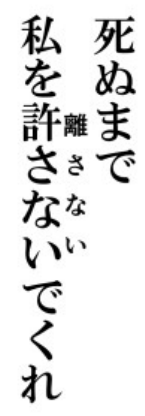 死ぬまで
私を許さないでくれ
離さない